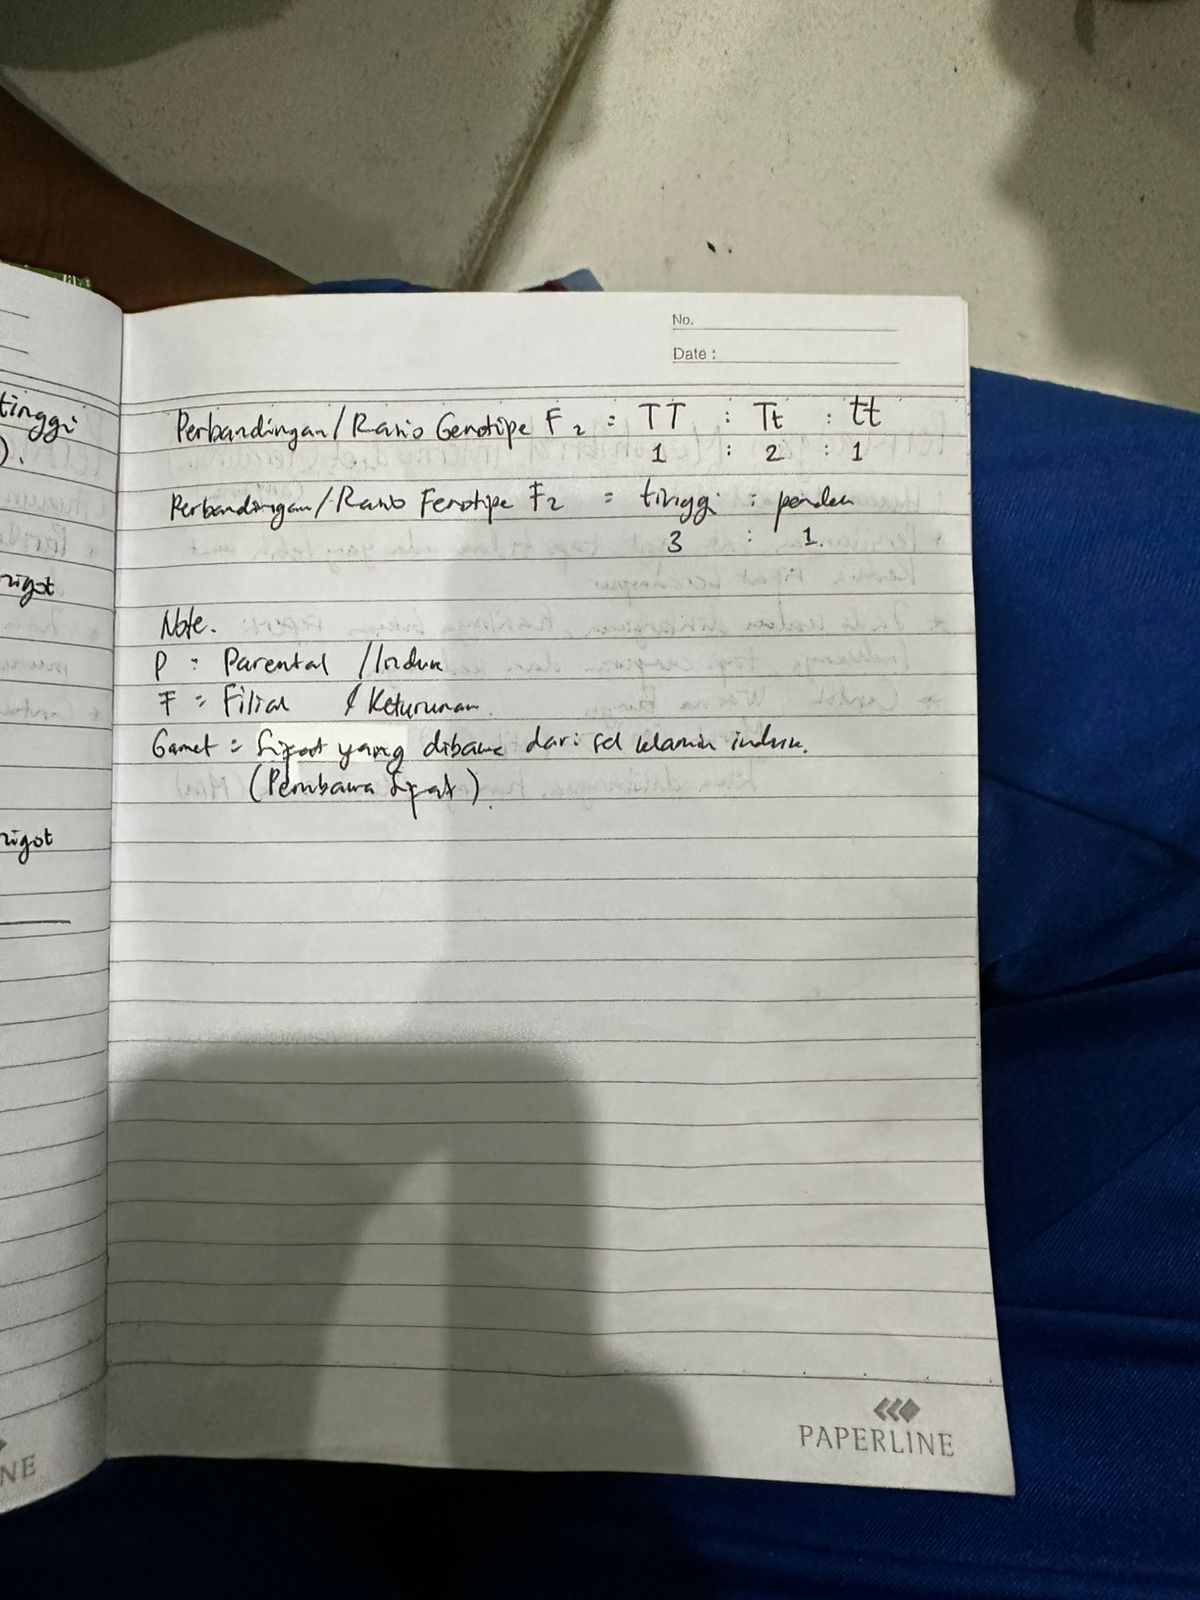 tinggi
).
zigot
zigot
No.
Date :
Perbandingan/Rasio Genotipe F2 = TT : Tt : tt
1 : 2 : 1
Perbandingan/Rasio Fenotipe F2 = tinggi : pendek
3 : 1.
Note.
P = Parental /Induk
F = Filial / Keturunan.
Gamet = Sifat yang dibawa dari sel kelamin induk.
(Pembawa Sifat).
PAPERLINE
NE